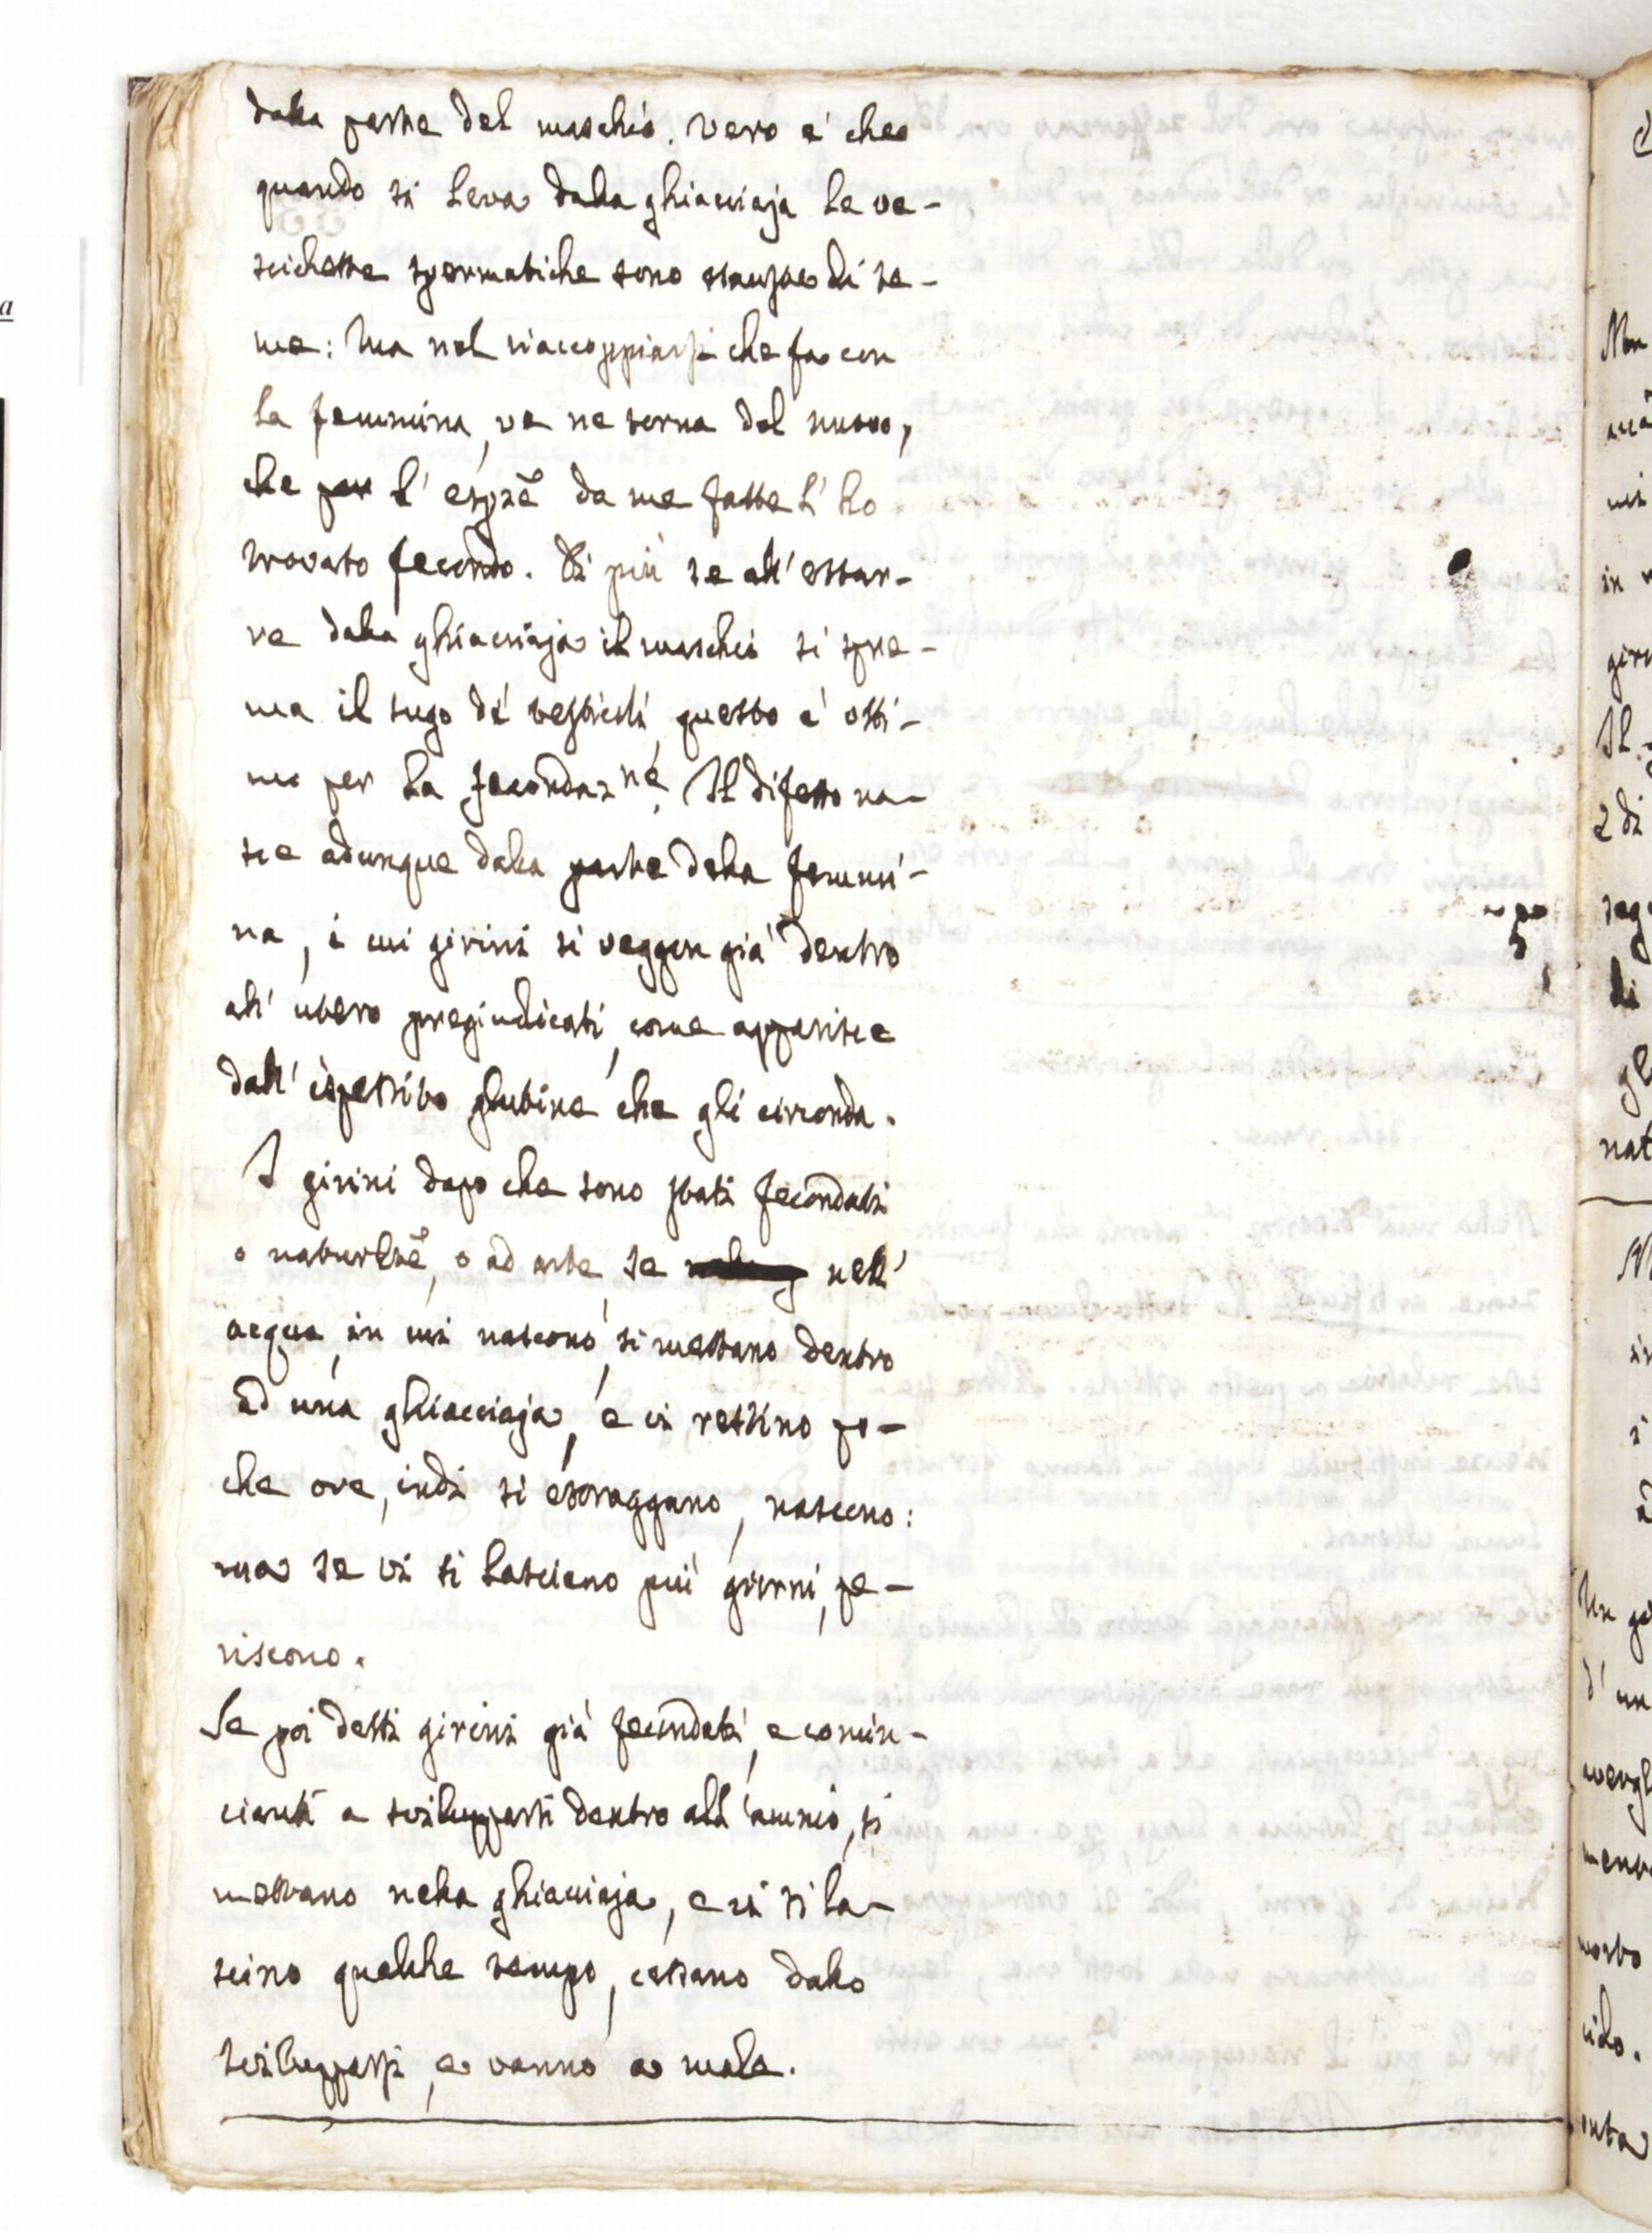 dalla parte del maschio. Vero è che
quando si leva dalla ghiacciaja le ve-
scichette spermatiche sono stanche di se-
me: Ma nel riaccoppiarsi che fa con
la femmina, ve ne torna del nuovo,
che per l' espzẽ da me fatte l' ho
trovato fecondo. Di più se all' estrar-
re dalla ghiacciaja il maschio si spre-
ma il sugo de' testicoli, questo è otti-
mo per la fecondazne. Il difetto na-
sce adunque dalla parte della femmi-
na, i cui girini si veggon già dentro
all' utero pregiudicati, come apparisce
dall' ispessito glutine che gli circonda.
I girini dopo che sono stati fecondati
o naturlzẽ, o ad arte, se nell'
acqua, in cui nascono, si mettano dentro
ad una ghiacciaja, e vi restino po-
che ore, indi si estraggano, nascono:
ma se vi si lasciano più giorni, pe-
riscono.
Se poi detti girini già fecondati, e comin-
cianti a svilupparsi dentro all' amnio, si
mettano nella ghiacciaja, e vi si la-
scino qualche tempo, cessano dallo
svilupparsi, e vanno a male.
5
a